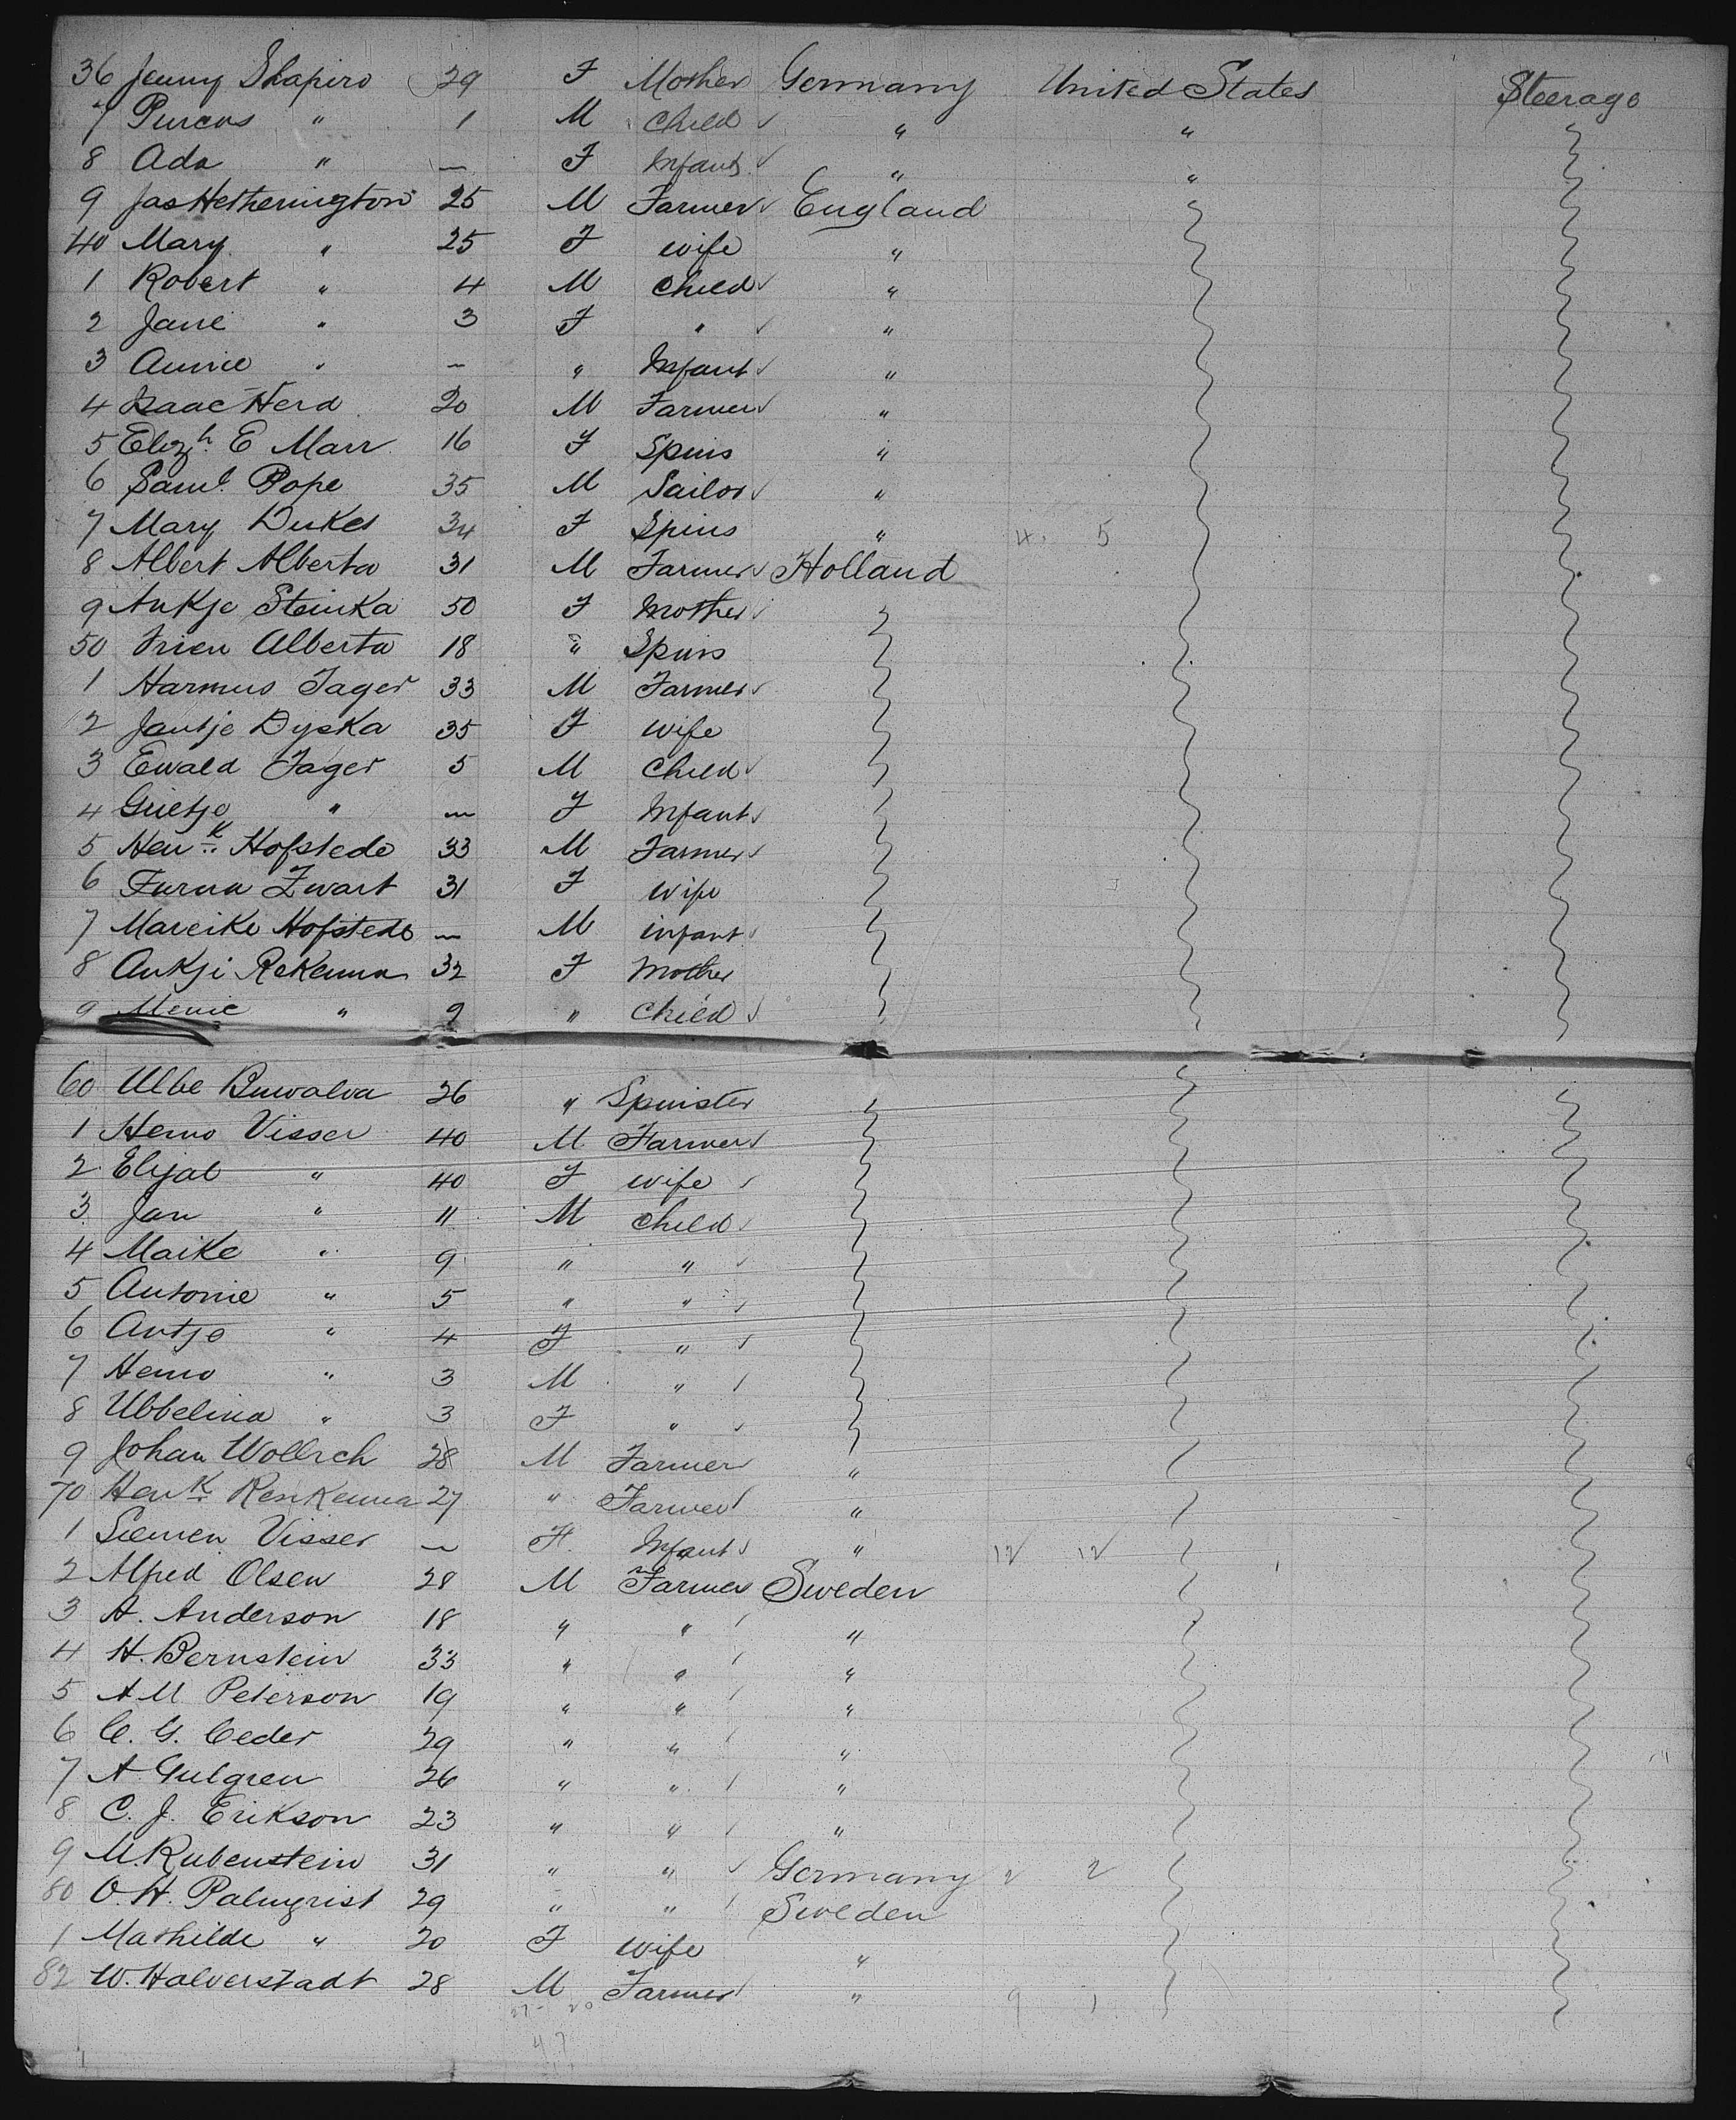 36 Jenny Shapiro 29 F Mother Germany United States Steerage
7 Purcus " 1 M Child " "
8 Ada " — F Infant " "
9 Jas Hetherington 25 M Farmer England
40 Mary " 25 F wife "
1 Robert " 4 M Child "
2 Jane " 3 F " "
3 Annie " — " Infant "
4 Isaac Herd 20 M Farmer "
5 Elizh. E Marr 16 F Spins "
6 Saml. Pope 35 M Sailor "
7 Mary Dukes 34 F Spins " 4. 5
8 Albert Alberta 31 M Farmer Holland
9 Ankje Steinka 50 F Mother
50 Trien Alberta 18 " Spins
1 Harmus Jager 33 M Farmer
2 Jantje Dyska 35 F wife
3 Ewald Jager 5 M Child
4 Grietje " — F Infant
5 Henk. Hofstede 33 M Farmer
6 Zwart 31 F wife
7 Mareike Hofstede — M infant
8 Ankji Rekenna 32 F Mother
9 Menie " 9 " Child
60 Ulbe Buwalva 26 " Spinster
1 Hemo Visser 40 M Farmer
2 Elijab " 40 F wife
3 Jan " 11 M Child
4 Maike " 9 " "
5 Antonie " 5 " "
6 Antje " 4 F "
7 Hemo " 3 M "
8 Ubbelina " 3 F "
9 Johan Wollrch 28 M Farmer "
70 Henk Renkenna 27 " Farmer "
1 Siemen Visser — F. Infant " 12 12
2 Alfred Olsen 28 M Farmer Sweden
3 A. Anderson 18 " " "
4 H. Bernstein 33 " " "
5 A M Peterson 19 " " "
6 C. G. Ceder 29 " " "
7 A Gulgren 26 " " "
8 C. J. Erikson 23 " " "
9 M. Rubenstein 31 " " Germany 2 2
80 O. H. Palmqrist 29 " " Sweden
1 Mathilde " 20 F wife "
82 W. Halverstadt 28 M Farmer " 9 1
27- 20
47